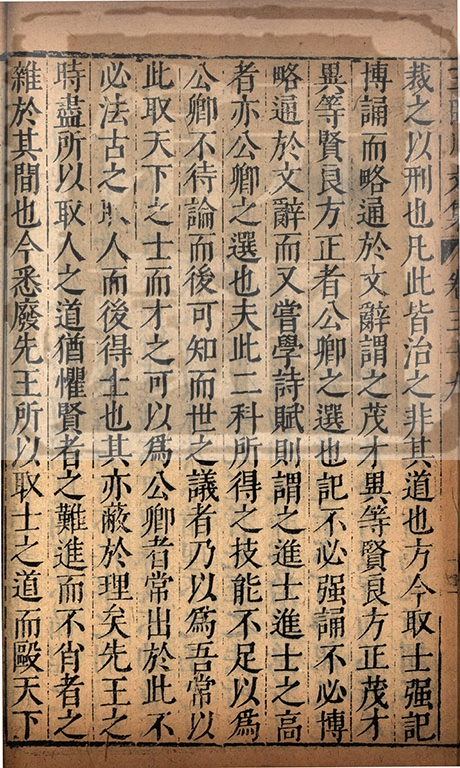 裁之以刑也凡此皆治之非其道也方今取士强記
博誦而略通於文辭謂之茂才異等賢良方正茂才
異等賢良方正者公卿之選也記不必强誦不必博
略通於文辭而又嘗學詩賦則謂之進士進士之高
者亦公卿之選也夫此二科所得之技能不足以爲
公卿不待論而後可知而世之議者乃以爲吾常以
此取天下之士而才之可以爲公卿者常出於此不
必法古之取人而後得士也其亦蔽於理矣先王之
時盡所以取人之道猶懼賢者之難進而不肖者之
雜於其間也今悉廢先王所以取士之道而毆天下